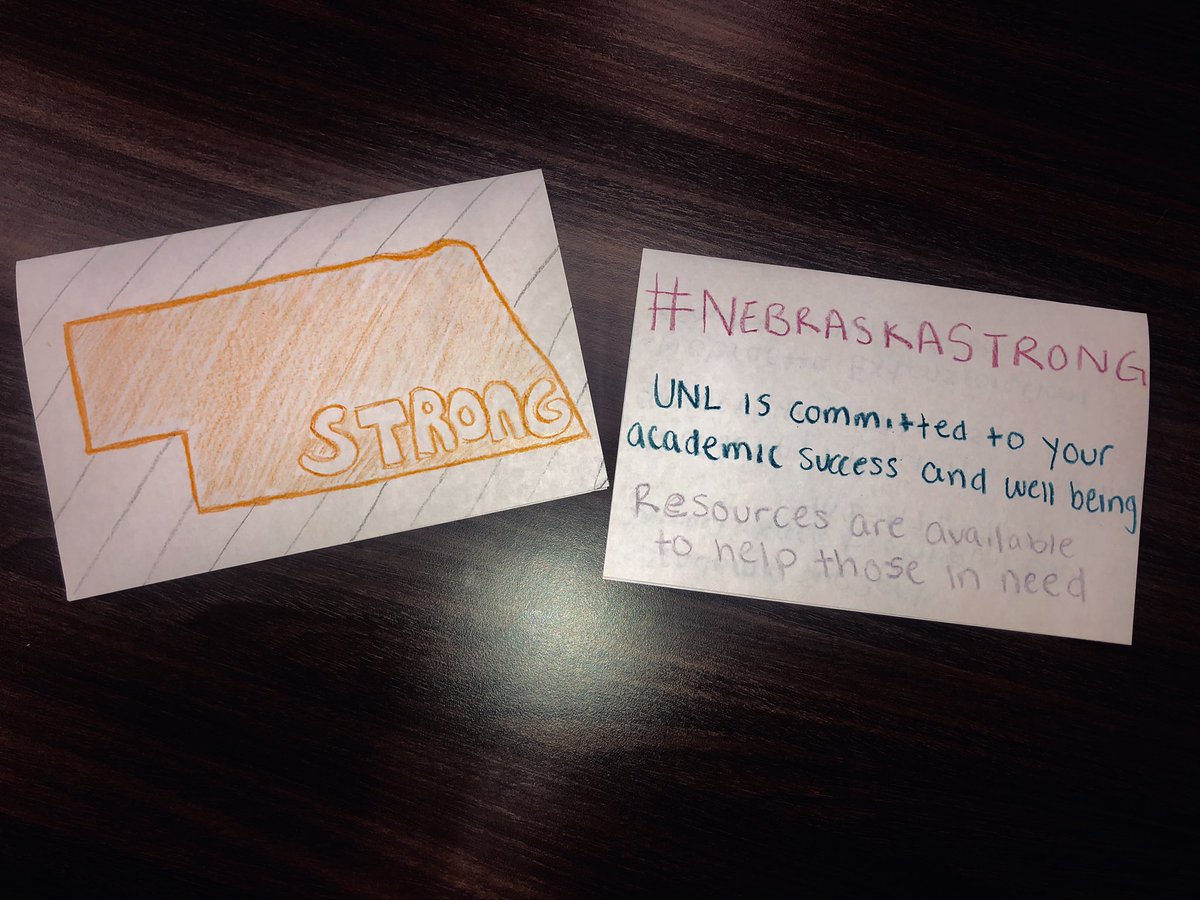 STRONG
#NEBRASKASTRONG
UNL is committed to your
academic success and well being
Resources are available
to help those in need